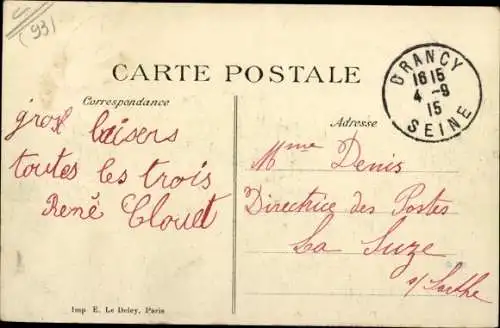 (93)
CARTE POSTALE
Correspondance
Adresse
DRANCY
16 15
4 -9
15
SEINE
gros baisers
toutes les trois
René Clouet
Mme Denis
Directrice des Postes
La Suze
s/ Sarthe
Imp E. Le Deley, Paris